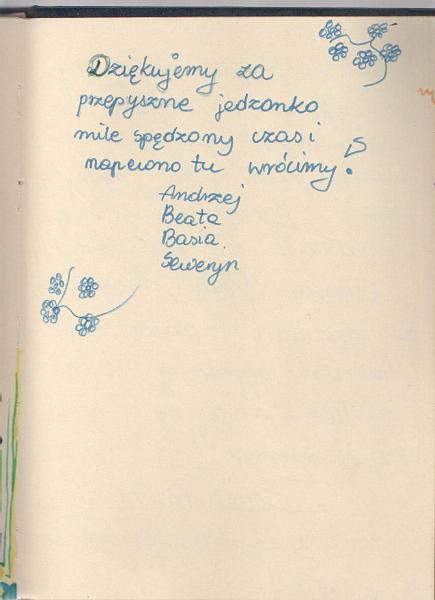 Dziękujemy za
przepyszne jedzonko
mile spędzony czas i
napewno tu wrócimy!
Andrzej
Beata
Basia
Seweryn